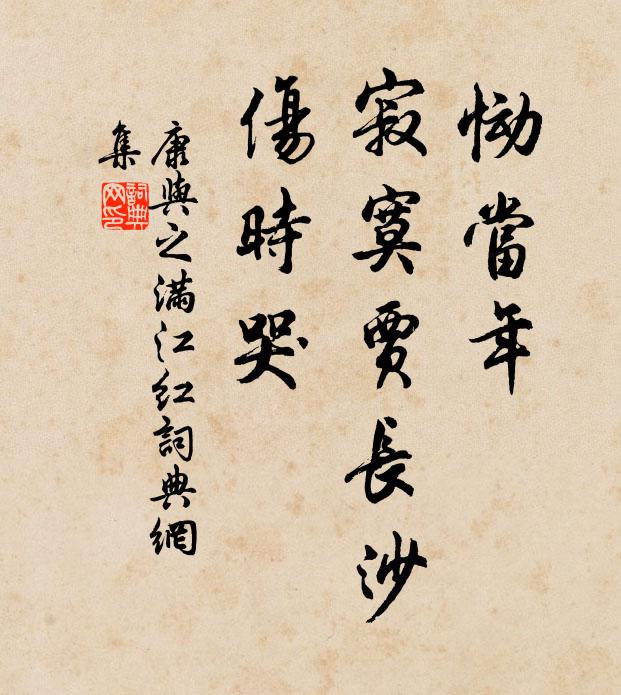 恸當年
寂寞賈長沙
傷時哭
康與之滿江紅詞典網
集
詞典网印